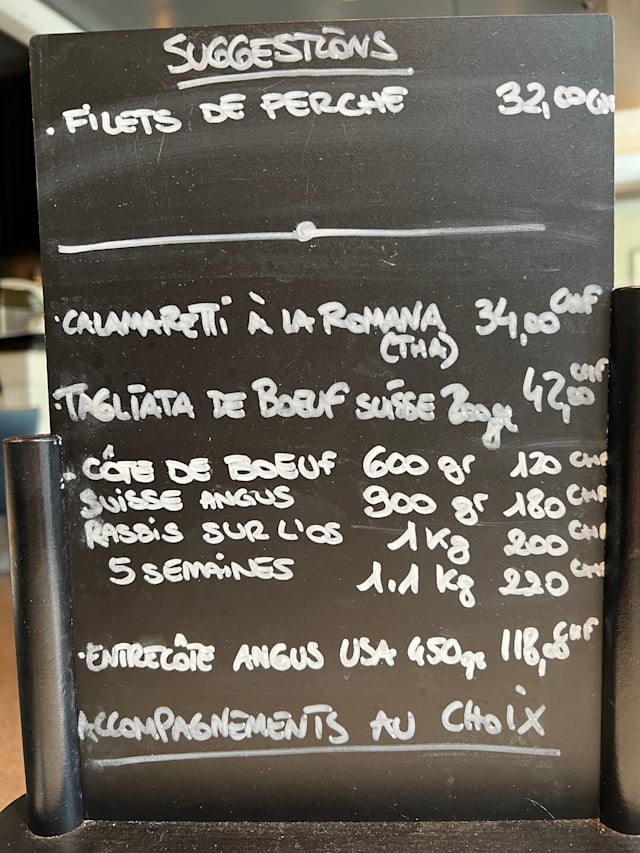 SUGGESTIONS
. FILETS DE PERCHE 32,00 CHF
· CALAMARETTI À LA ROMANA 34,00 CHF
(THA)
· TAGLIATA DE BOEUF SUISSE 200gr 42,00 CHF
· CÔTE DE BOEUF 600 gr 120 CHF
SUISSE ANGUS 900 gr 180 CHF
RASSIS SUR L'OS 1 Kg 200 CHF
5 SEMAINES 1.1 Kg 220 CHF
· ENTRECÔTE ANGUS USA 450gr 118,00 CHF
ACCOMPAGNEMENTS AU CHOIX